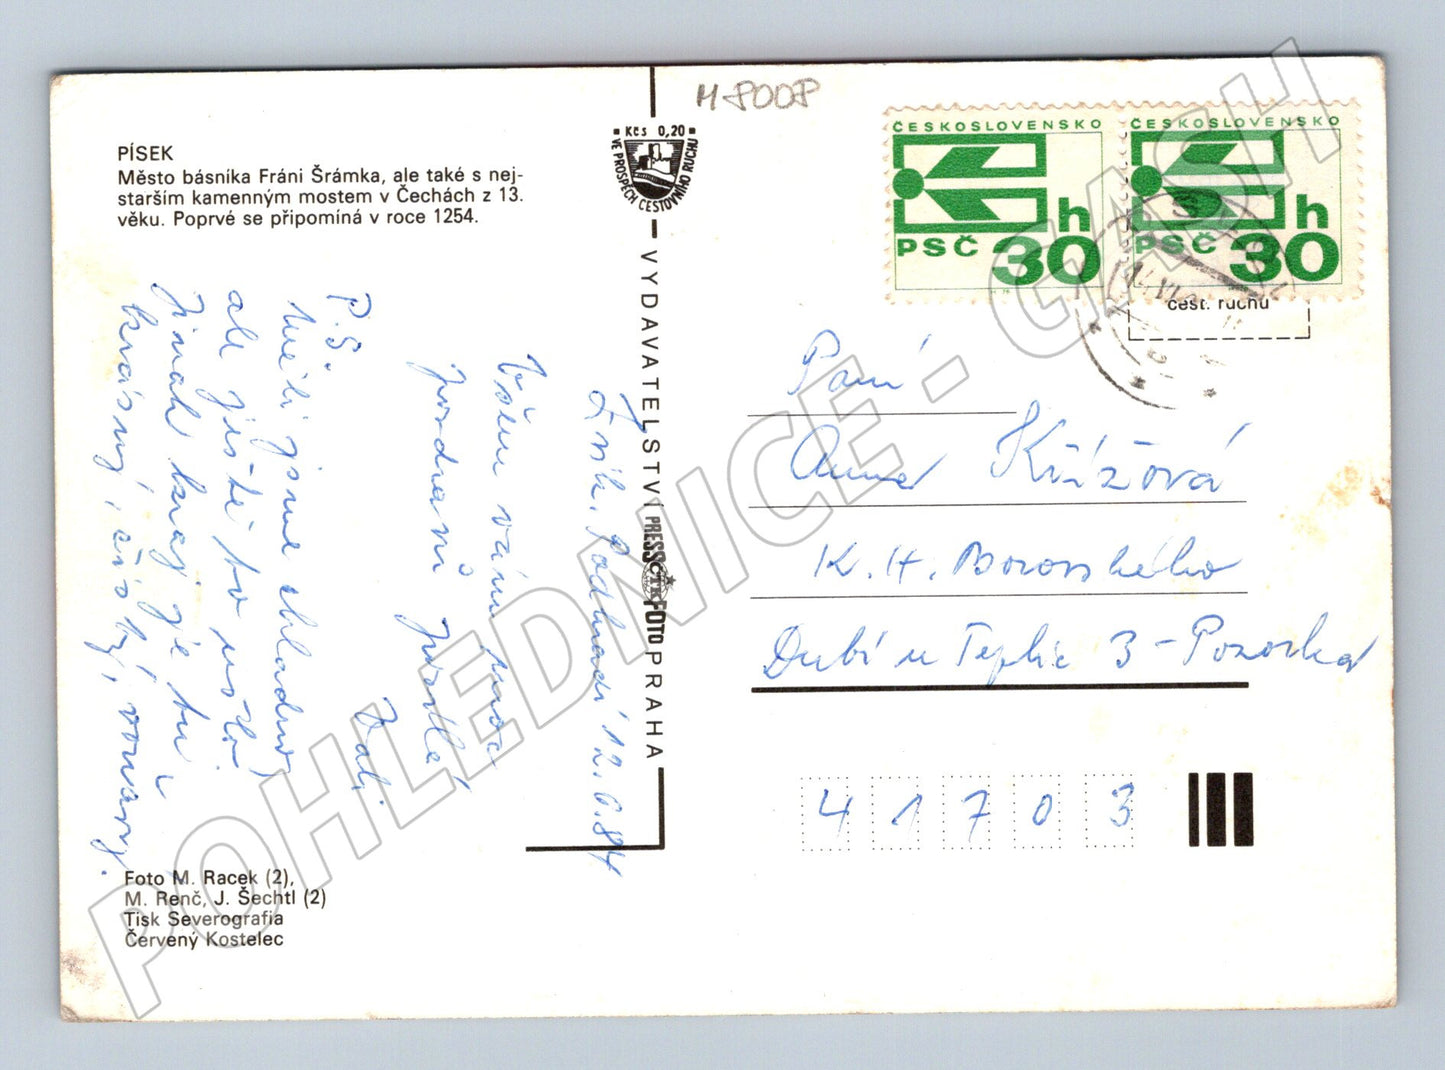 M-8008
PÍSEK
Město básníka Fráni Šrámka, ale také s nej-
starším kamenným mostem v Čechách z 13.
věku. Poprvé se připomíná v roce 1254.
Kčs 0,20
VE PROSPĚCH CESTOVNÍHO RUCHU
VYDAVATELSTVÍ PRESSFOTO PRAHA
ČTK
ČESKOSLOVENSKO
PSČ 30h
ČESKOSLOVENSKO
PSČ 30h
cest. ruchu
12.6.84
Všem vám moc
pozdravů posílá
P.S.
Měli jsme chladno,
ale ještě to ušlo
Jinak kraj je tu
krásný, čistý,
Paní
Anna Křížová
K. H. Borovského
Dubí u Teplic 3 - Pozorka
41703
Foto M. Racek (2),
M. Renč, J. Šechtl (2)
Tisk Severografia
Červený Kostelec
POHLEDNICE - GASH